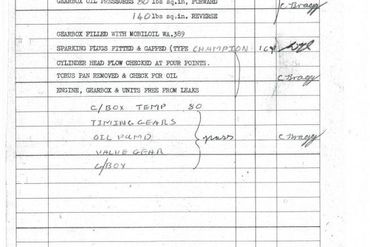 GEARBOX OIL PRESSURES 80 lbs sq.in, FORWARD C Bragg
140 lbs sq.in. REVERSE
GEARBOX FILLED WITH MOBILOIL WA.389
SPARKING PLUGS FITTED & GAPPED (TYPE CHAMPION
CYLINDER HEAD FLOW CHECKED AT FOUR POINTS.
TORUS PAN REMOVED & CHECK FOR OIL C Bragg
ENGINE, GEARBOX & UNITS FREE FROM LEAKS
C/BOX TEMP 80
TIMING GEARS
OIL PUMP pass C Bragg
VALVE GEAR
C/BOX